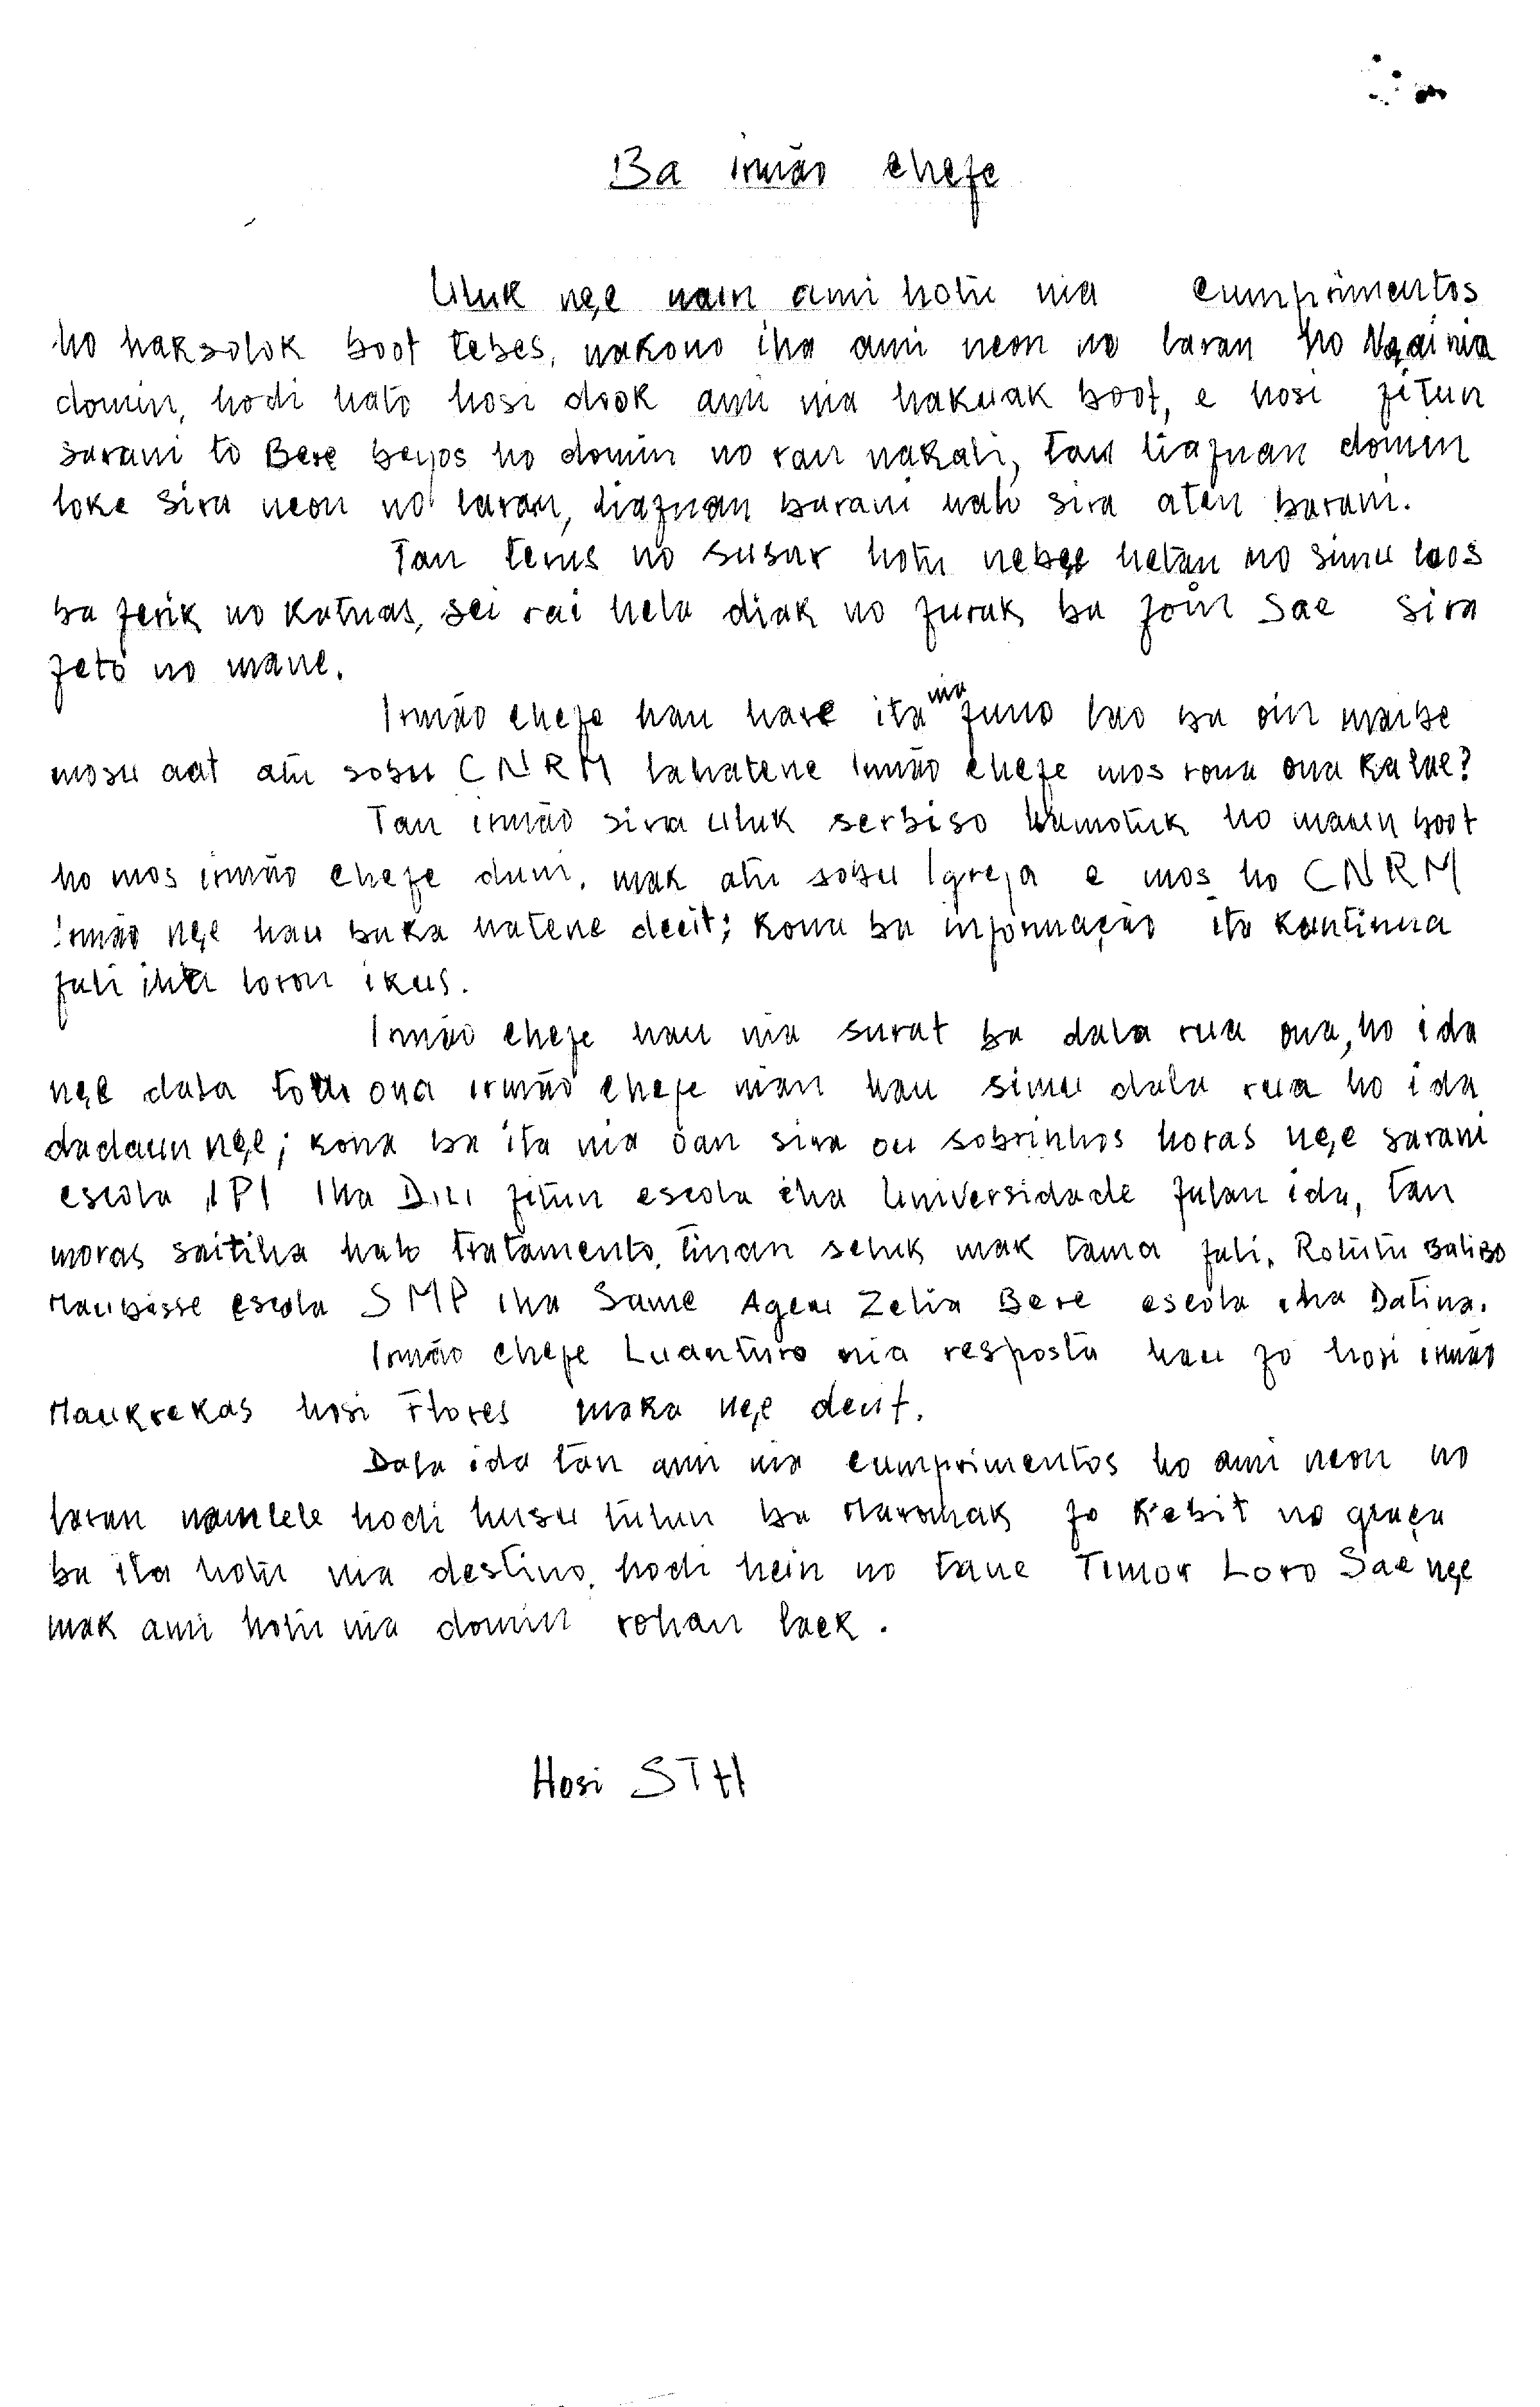 Ba irmão chefe
Uluk nẹe nain ami hotu nia cumprimentos
ho haksolok boot tebes, nakono iha ami neon no laran ho Nạai nia
domin, hodi hato hosi dook ami nia hakuak boot, e hosi fitun
barani to Bere beijos ho domin no ran nakali, tan liafuan domin
loke sira neon no laran, liafuan barani halo sira aten barani.
Tan terus no susar hotu nebẹe hetan no simu laos
ba ferik no katuas, sei rai hela diak no furak ba foin sae sira
feto no mane.
Irmão chefe hau hare ita nia funo lao ba oin maibe
mosu aat atu sobu CNRM lahatene Irmão chefe mos rona ona ka lae?
Tan irmão sira uluk serbiso hamotuk ho maun boot
ho mos irmão chefe duni, mak atu sobu Igreja e mos ho CNRM
Irmão nẹe hau buka hatene deeit; kona ba informação ita kontinua
fali iha loron ikus.
Irmão chefe hau nia surat ba dala rua ona, ho ida
nẹe dala tolu ona irmão chefe nian hau simu dala rua ho ida
dadaun nẹe; kona ba ita nia oan sira ou sobrinhos horas nẹe barani
escola IPI iha Dili fitun escola iha Universidade fulan ida, tan
moras saitiha halo tratamento, tinan seluk mak tama fali. Rotutu Balibo
Maubisse escola SMP iha Same Ageu Zelia Bere escola iha Datina.
Irmão chefe Luanturo nia resposta hau fo hosi irmão
Maukrekas hosi Flores maka nẹe deeit.
Dala ida tan ami nia cumprimentos ho ami neon no
laran namlele hodi husu tulun ba Maromak fo kbit no graça
ba ita hotu nia destino, hodi hein no tane Timor Loro Sae nẹe
mak ami hotu nia domin rohan laek.
Hosi STH